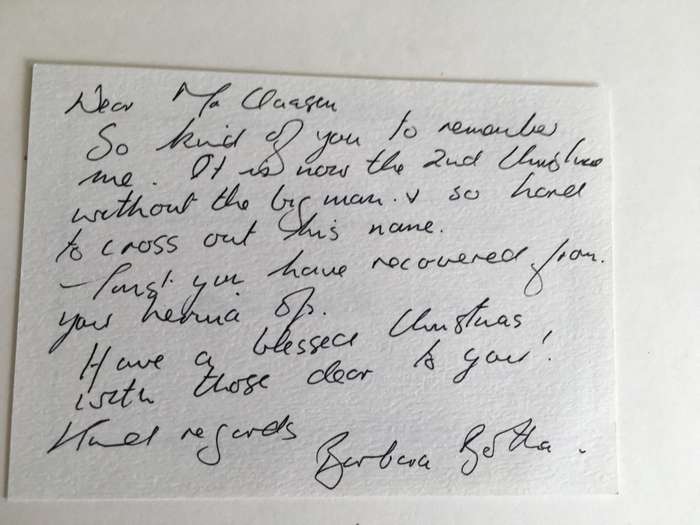 Dear Mr Claasen
So kind of you to remember
me. It is now the 2nd Christmas
without the big man. & so hard
to cross out his name.
- Trust you have recovered from
your hernia op.
Have a blessed Christmas
with those dear to you!
Kind regards
Barbara Botha.